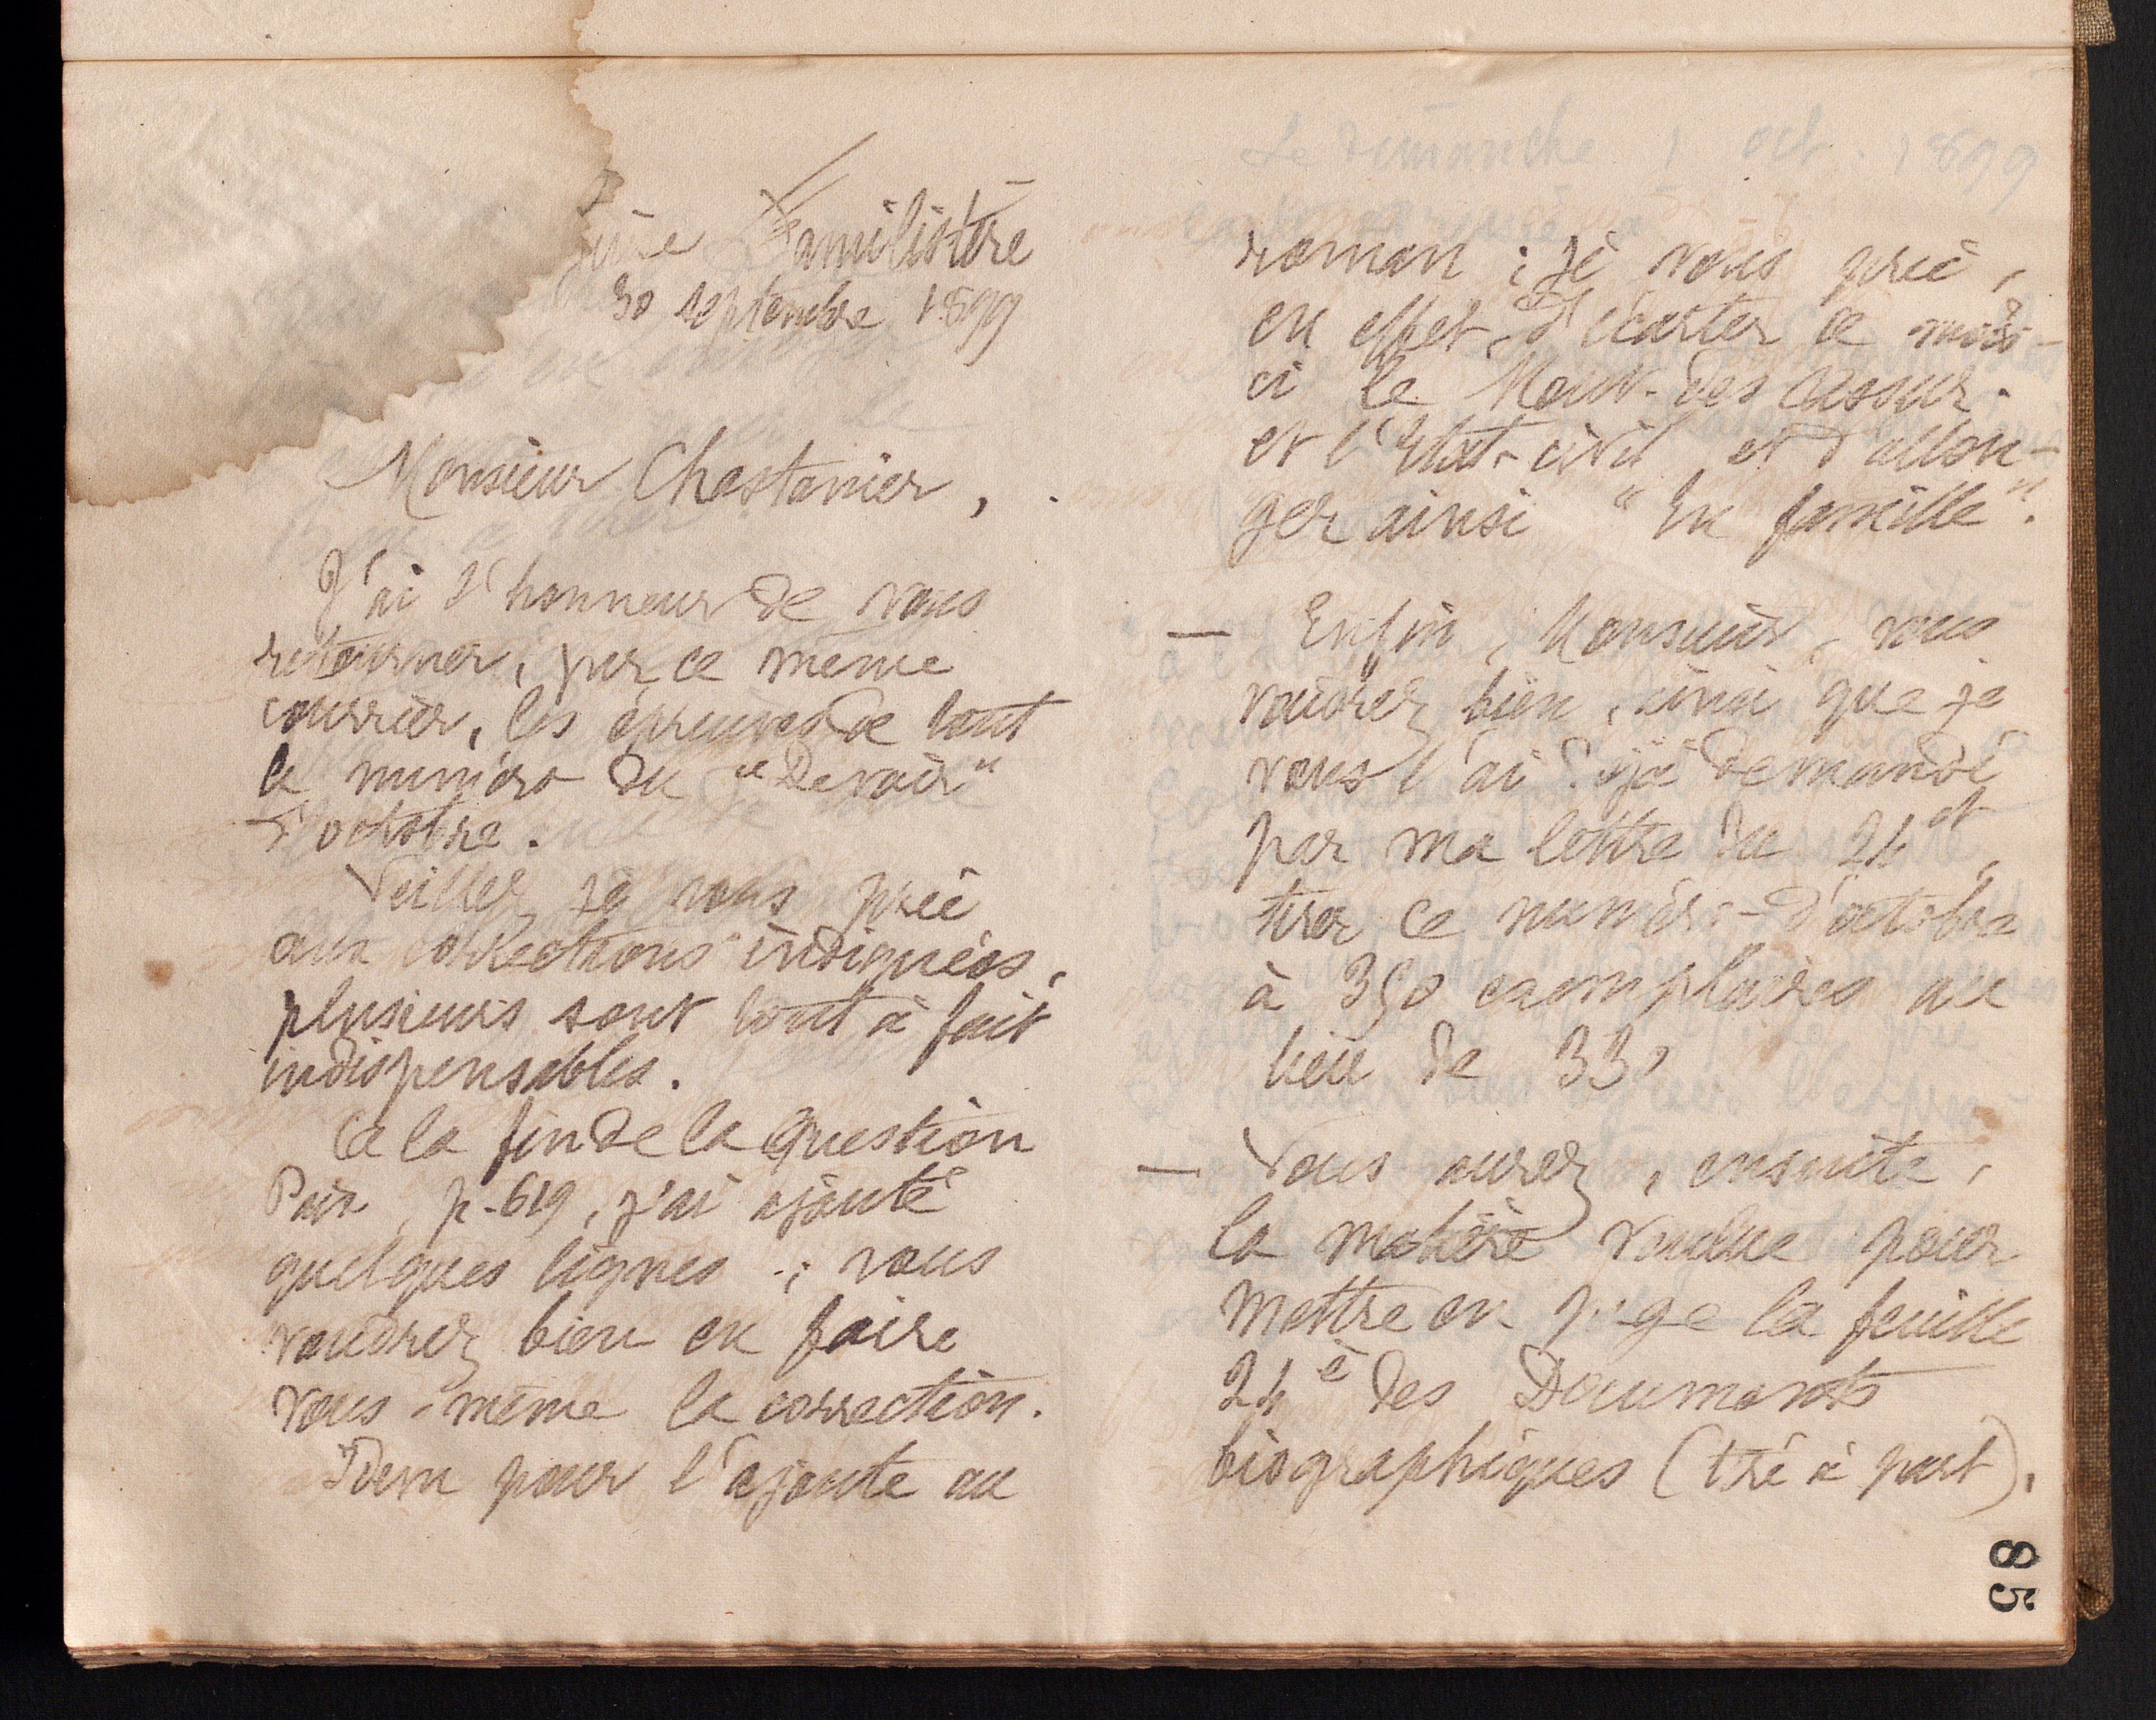 Guise Familistère
30 septembre 1899
Monsieur Chastanier,
J'ai l'honneur de vous
retourner, par ce même
courrier, les épreuves de tout
le numéro du "Devoir"
d'octobre.
Veillez je vous prie
aux corrections indiquées,
plusieurs sont tout à fait
indispensables.
A la fin de la question
Paix, p. 619, j'ai ajouté
quelques lignes ; vous
voudrez bien en faire
vous-même la correction.
Idem pour l'ajoute au
Le Dimanche 1 oct. 1899
roman ; je vous prie,
en effet, d'écarter ce mois-
ci le Mouv. des assur.
et l'Etat-civil et d'allon-
ger ainsi "En famille".
— Enfin, Monsieur, vous
voudrez bien, ainsi que je
vous l'ai déjà demandé
par ma lettre du 24 ct,
tirer ce numéro d'octobre
à 350 exemplaires au
lieu de 330
— Vous aurez, ensuite,
la matière voulue pour
mettre en page la feuille
24è des Documents
biographiques (tiré à part),
85